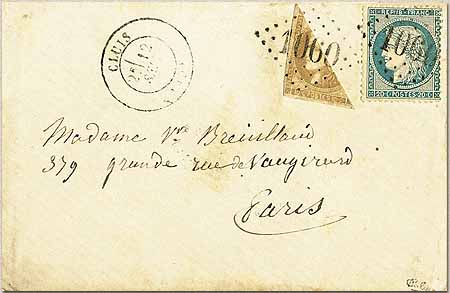 CLUIS
12
1060
1060
REPUB FRANC
20 C POSTES 20 C
Madame Vve Breuilland
379 grande rue de Vaugirard
Paris